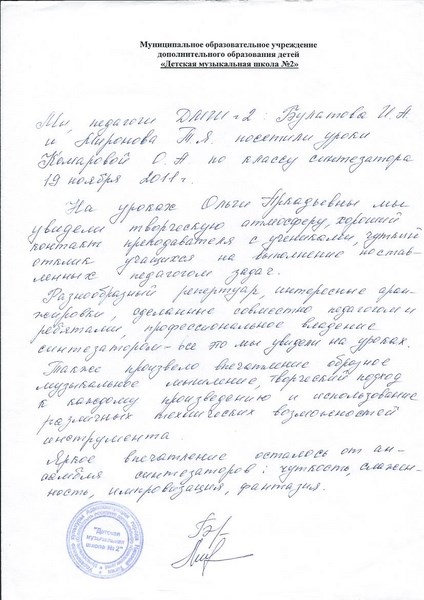 Муниципальное образовательное учреждение
дополнительного образования детей
«Детская музыкальная школа №2»
Мы, педагоги ДМШ №2: Булатова И.А.
и Миронова Т.Я. посетили уроки
Комаровой О.А. по классу синтезатора
19 ноября 2011г.
На уроках Ольги Аркадьевны мы
увидели творческую атмосферу, хороший
контакт преподавателя с учениками, чуткий
отклик учащихся на выполнение постав-
ленных педагогом задач.
Разнообразный репертуар, интересные аран-
жировки, сделанные совместно педагогом и
ребятами, профессиональное владение
синтезатором – все это мы увидели на уроках.
Также произвело впечатление образное
музыкальное мышление, творческий подход
к каждому произведению и использование
различных технических возможностей
инструмента.
Яркое впечатление осталось от ан-
самбля синтезаторов: чуткость, слажен-
ность, импровизация, фантазия.
"Детская
музыкальная
школа №2"